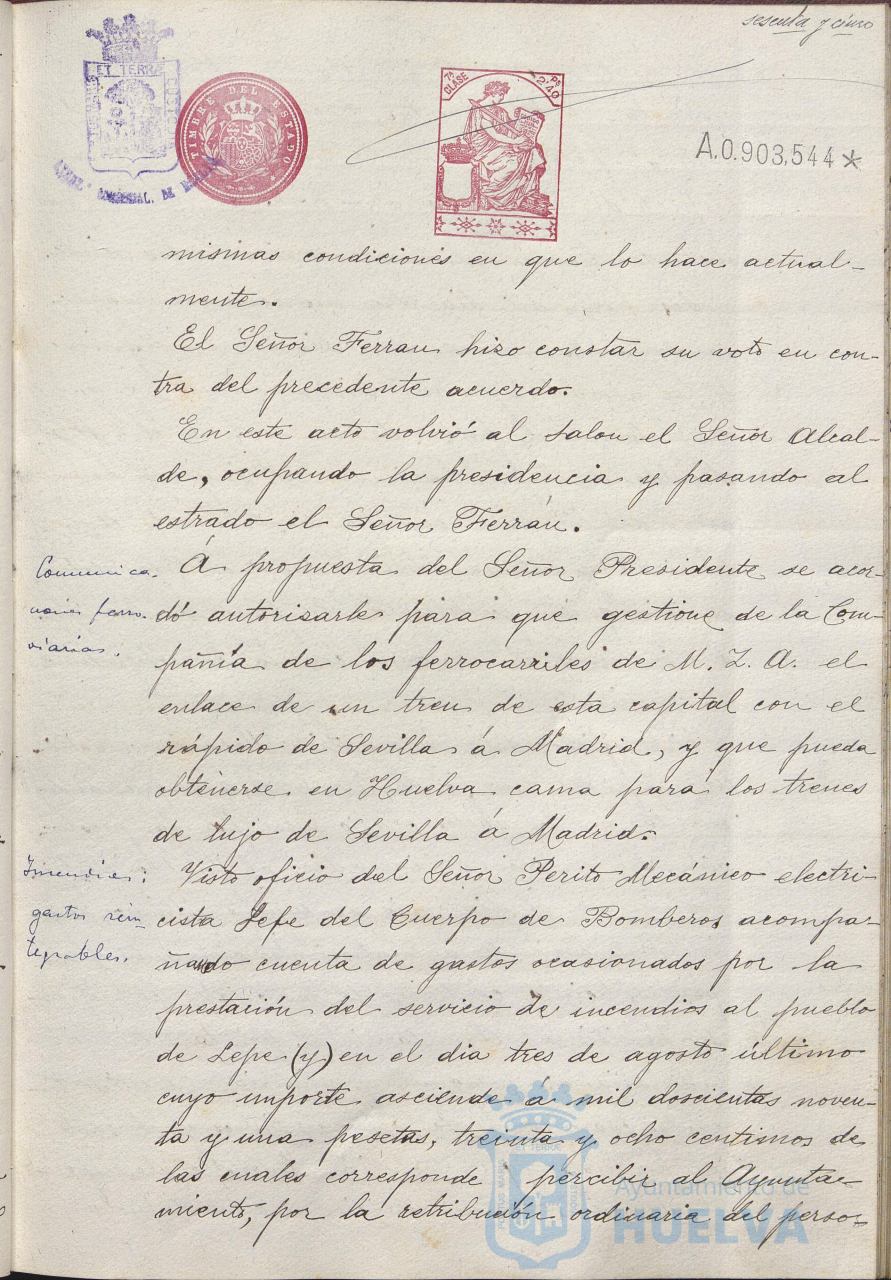 sesenta y cinco
ET TERRÆ
TIMBRE DEL ESTADO
7ª CLASE
Ps 2'40
A.0.903,544*
mismas condiciones en que lo hace actual-
mente.
El Señor Ferran hizo constar su voto en con-
tra del precedente acuerdo.
En este acto volvió al salon el Señor Alcal-
de, ocupando la presidencia y pasando al
estrado el Señor Ferrán.
Comunica-
ciones ferro-
viarias.
Á propuesta del Señor Presidente se acor-
dó autorisarle para que gestione de la Com-
pañía de los ferrocarriles de M. Z. A. el
enlace de un tren de esta capital con el
rápido de Sevilla á Madrid, y que pueda
obtenerse en Huelva cama para los trenes
de lujo de Sevilla á Madrid.
Incendios:
gastos rein-
tegrables.
Visto oficio del Señor Perito Mecánico electri-
cista Jefe del Cuerpo de Bomberos acompa-
ñando cuenta de gastos ocasionados por la
prestación del servicio de incendios al pueblo
de Lepe (y) en el dia tres de agosto último
cuyo importe asciende á mil doscientas noven-
ta y una pesetas, treinta y ocho centimos de
las cuales corresponde percibir al Ayunta-
miento, por la retribución ordinaria del perso-
Ayuntamiento de
HUELVA